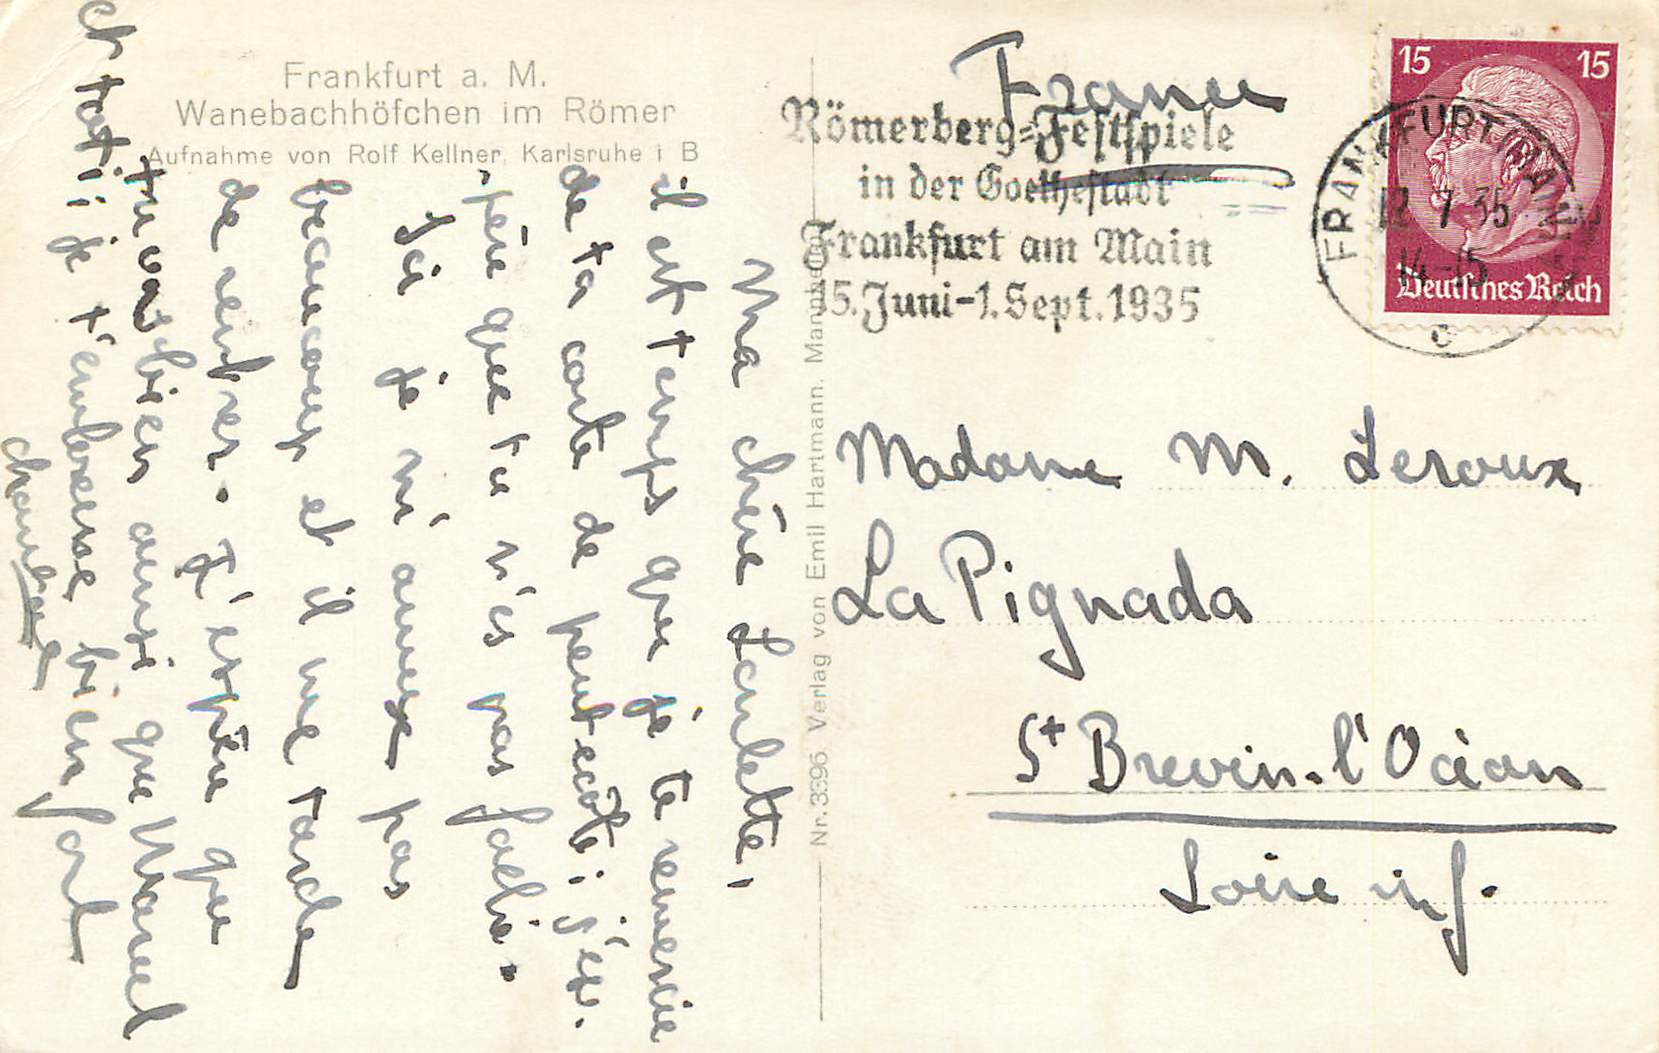 Frankfurt a. M.
Wanebachhöfchen im Römer
Aufnahme von Rolf Kellner, Karlsruhe i B
Ma chère Paulette,
il est temps que je te remercie
de ta carte de pentecôte; j'es-
père que tu n'es pas fachée.
Ici je m'amuse pas
beaucoup et il me tarde
de rentrer. J'espère que
tu vas bien ainsi que Marcel
et tati; je t'embrasse bien fort
Nr. 3396 Verlag von Emil Hartmann, Mannheim
France
Römerberg=Festspiele
in der Goethestadt
Frankfurt am Main
15. Juni-1. Sept. 1935
15 15
Deutsches Reich
FRANKFURT (MAIN)
12.7.35
14-15
c
Madame M. Leroux
La Pignada
St Brevin-l'Océan
Loire inf.